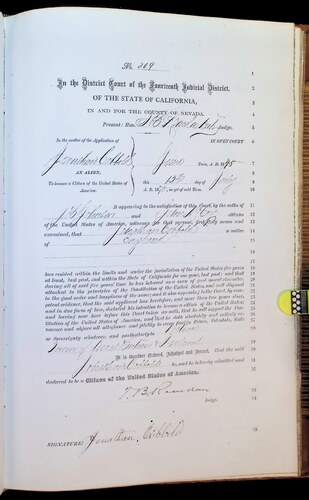 No. 209
In the District Court of the Fourteenth Judicial District,
OF THE STATE OF CALIFORNIA,
IN AND FOR THE COUNTY OF NEVADA.
Present: Hon. Judge.
In the matter of the Application IN OPEN COURT
of
Jonathan June Term, A. D. 18
AN ALIEN,
To become a Citizen of the United States of this 12th day of July
America. A. D. 18 in of said Term.
It appearing to the satisfaction of this Court, by the oaths of
and citizens
of the United States of America, witnesses for that purpose, first duly sworn and
examined, that Jonathan a native
of England
has resided within the limits and under the jurisdiction of the United States five years
at least, last past, and within the State of California for one year, last past; and that
during all of said five years' time he has behaved as a man of good moral character,
attached to the principles of the Constitution of the United States, and well disposed
to the good order and happiness of the same; and it also appearing to the Court, by com-
petent evidence, that the said applicant has heretofore, and more than two years since,
and in due form of law, declared his intention to become a citizen of the United States
and having now here before this Court taken an oath, that he will support the Con-
stitution of the United States of America, and that he doth absolutely and entirely re-
nounce and abjure all allegiance and fidelity to every foreign Prince, Potentate, State
or Sovereignty whatever, and particularly to
Queen of Great Britain & Ireland
It is therefore Ordered, Adjudged and Decreed, That the said
Jonathan be, and he is hereby admitted and
declared to be a Citizen of the United States of America.
Judge.
SIGNATURE: Jonathan